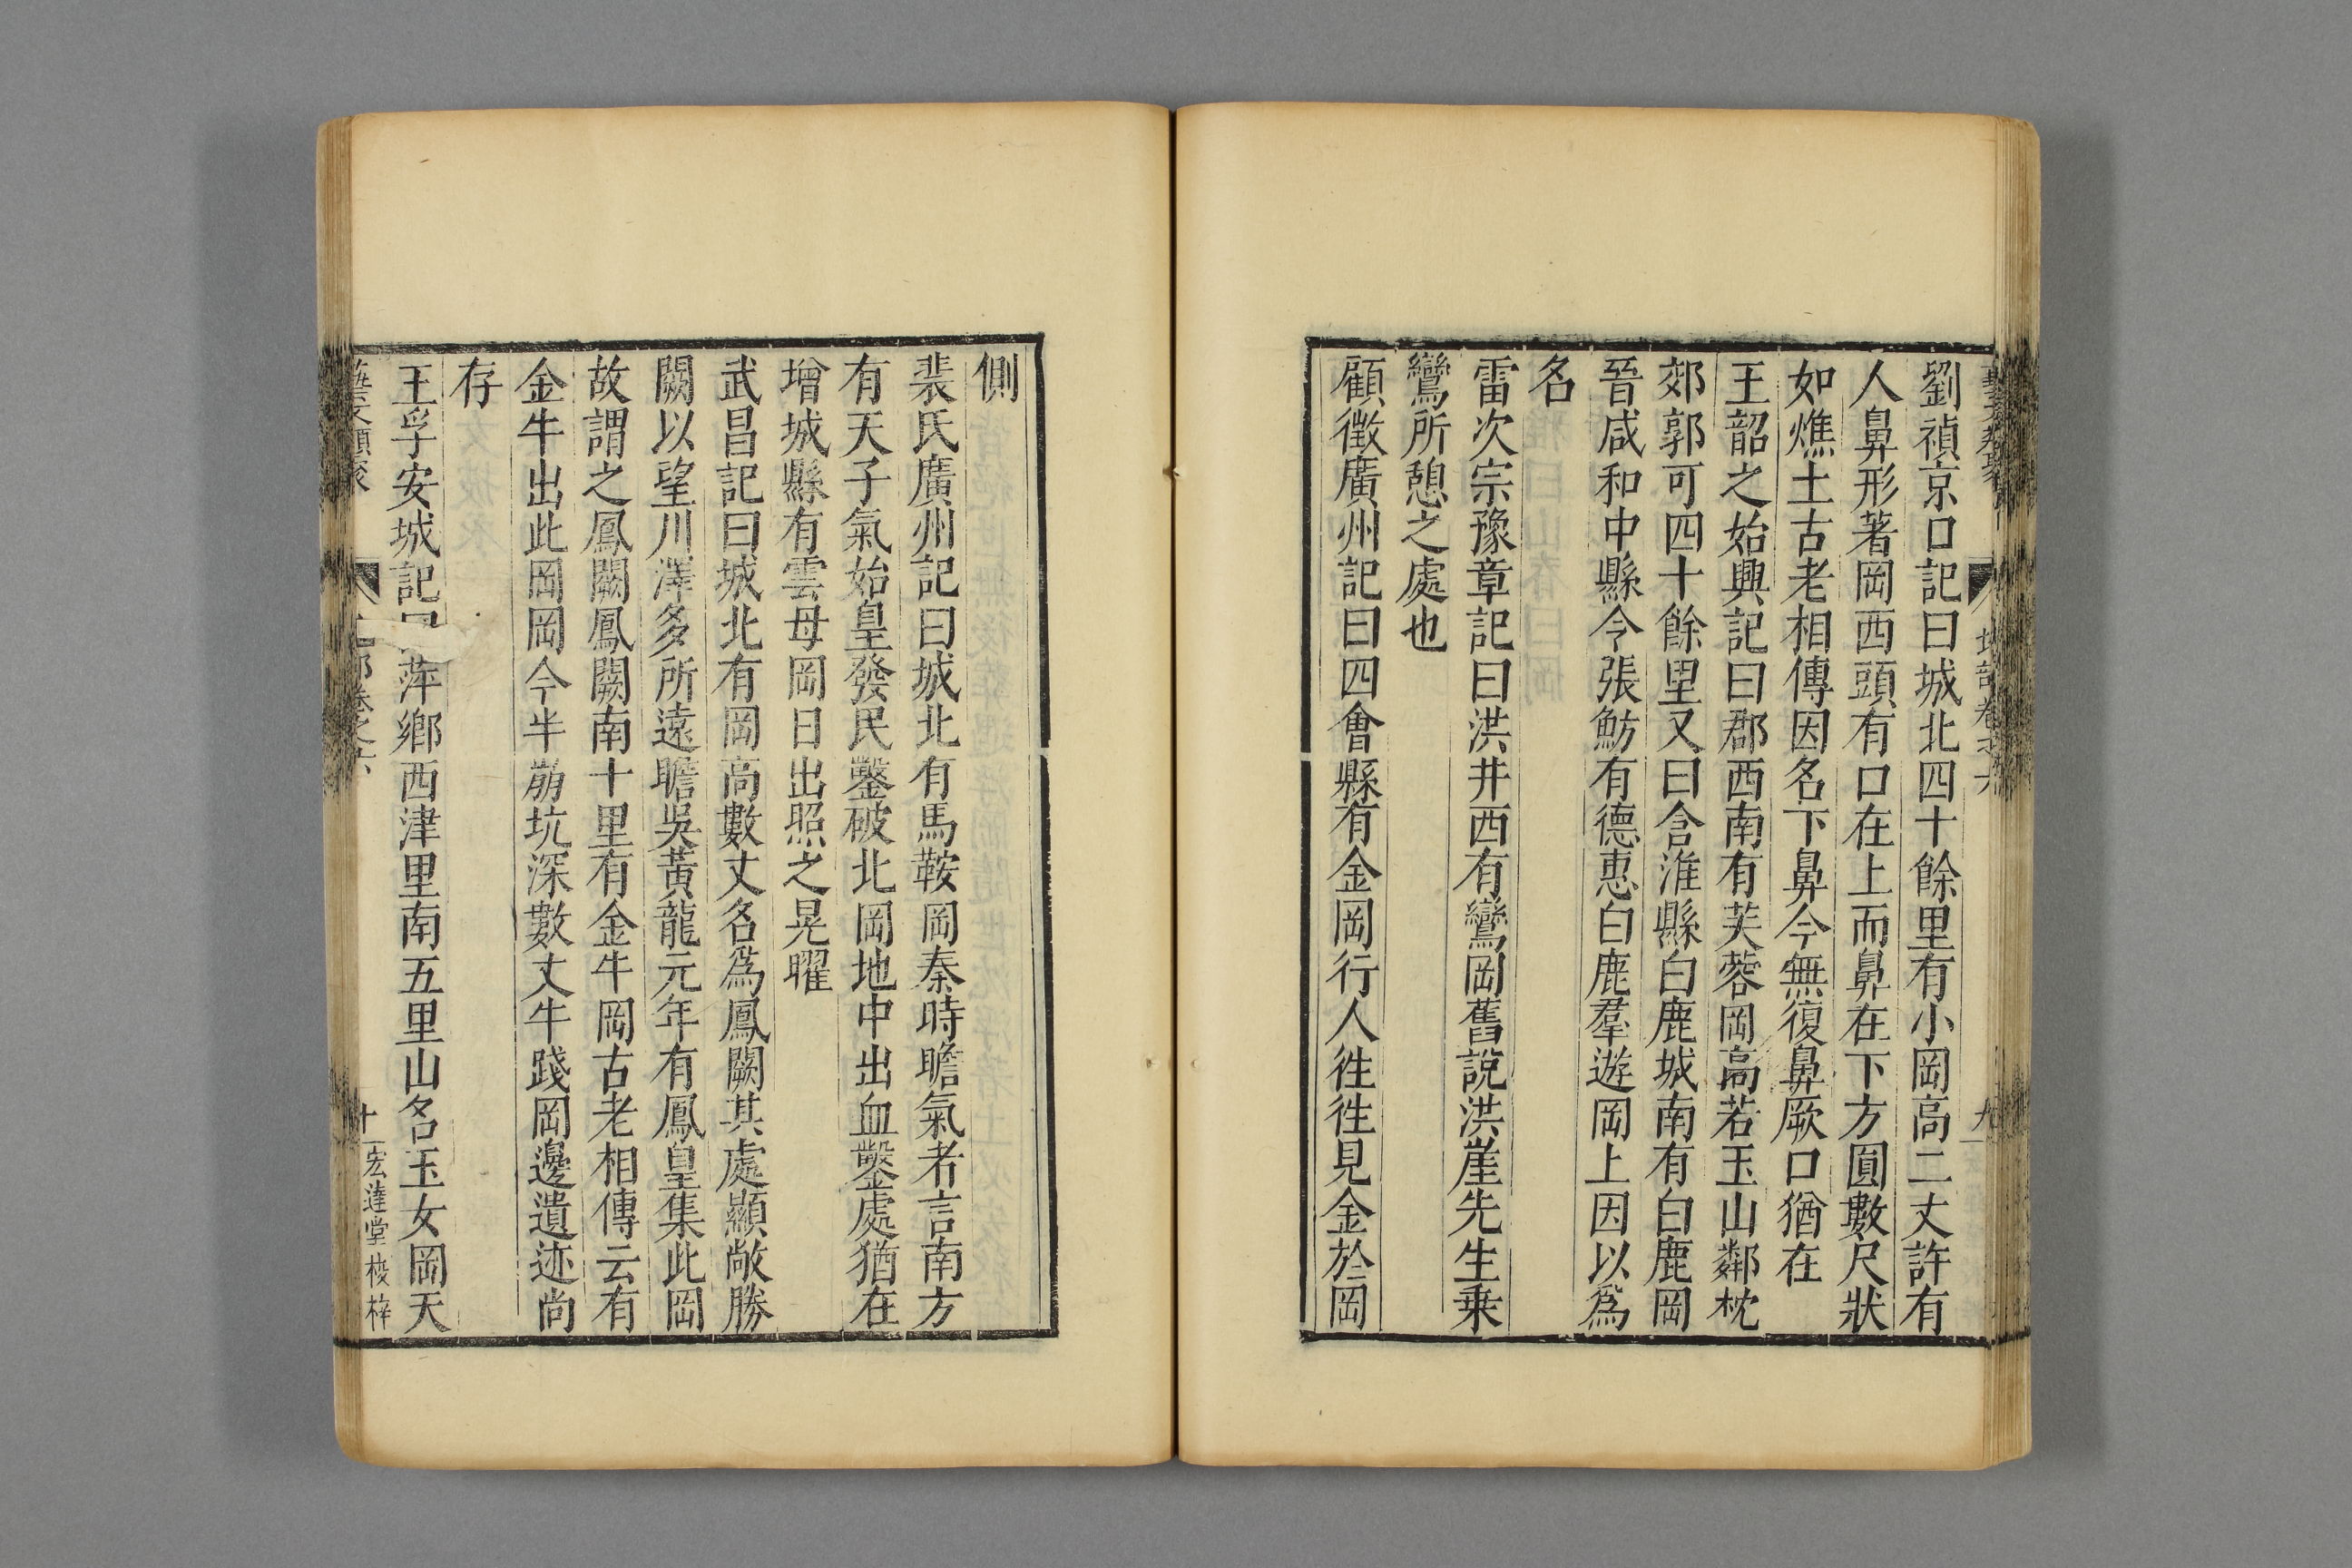 劉禎京口記曰城北四十餘里有小岡高二丈許有
人鼻形著岡西頭有口在上而鼻在下方圓數尺狀
如燋土古老相傳因名下鼻今無復鼻厥口猶在
王韶之始興記曰郡西南有芙蓉岡高若玉山鄰枕
郊郭可四十餘里又曰含淮縣白鹿城南有白鹿岡
晉咸和中縣令張魴有德惠白鹿羣遊岡上因以爲
名
雷次宗豫章記曰洪井西有鸞岡舊說洪崖先生乗
鸞所憩之處也
顧徴廣州記曰四會縣有金岡行人徃徃見金於岡
側
裴氏廣州記曰城北有馬鞍岡秦時瞻氣者言南方
有天子氣始皇發民鑿破北岡地中出血鑿處猶在
增城縣有雲母岡日出照之晃曜
武昌記曰城北有岡高數丈名爲鳳闕其處顯敞勝
闕以望川澤多所遠瞻吳黃龍元年有鳳皇集此岡
故謂之鳳闕鳳闕南十里有金牛岡古老相傳云有
金牛出此岡岡今半崩坑深數丈牛踐岡邊遺迹尚
存
王孚安城記曰萍鄉西津里南五里山名玉女岡天
藝文類聚 部卷之六 十 宏達堂棱梓